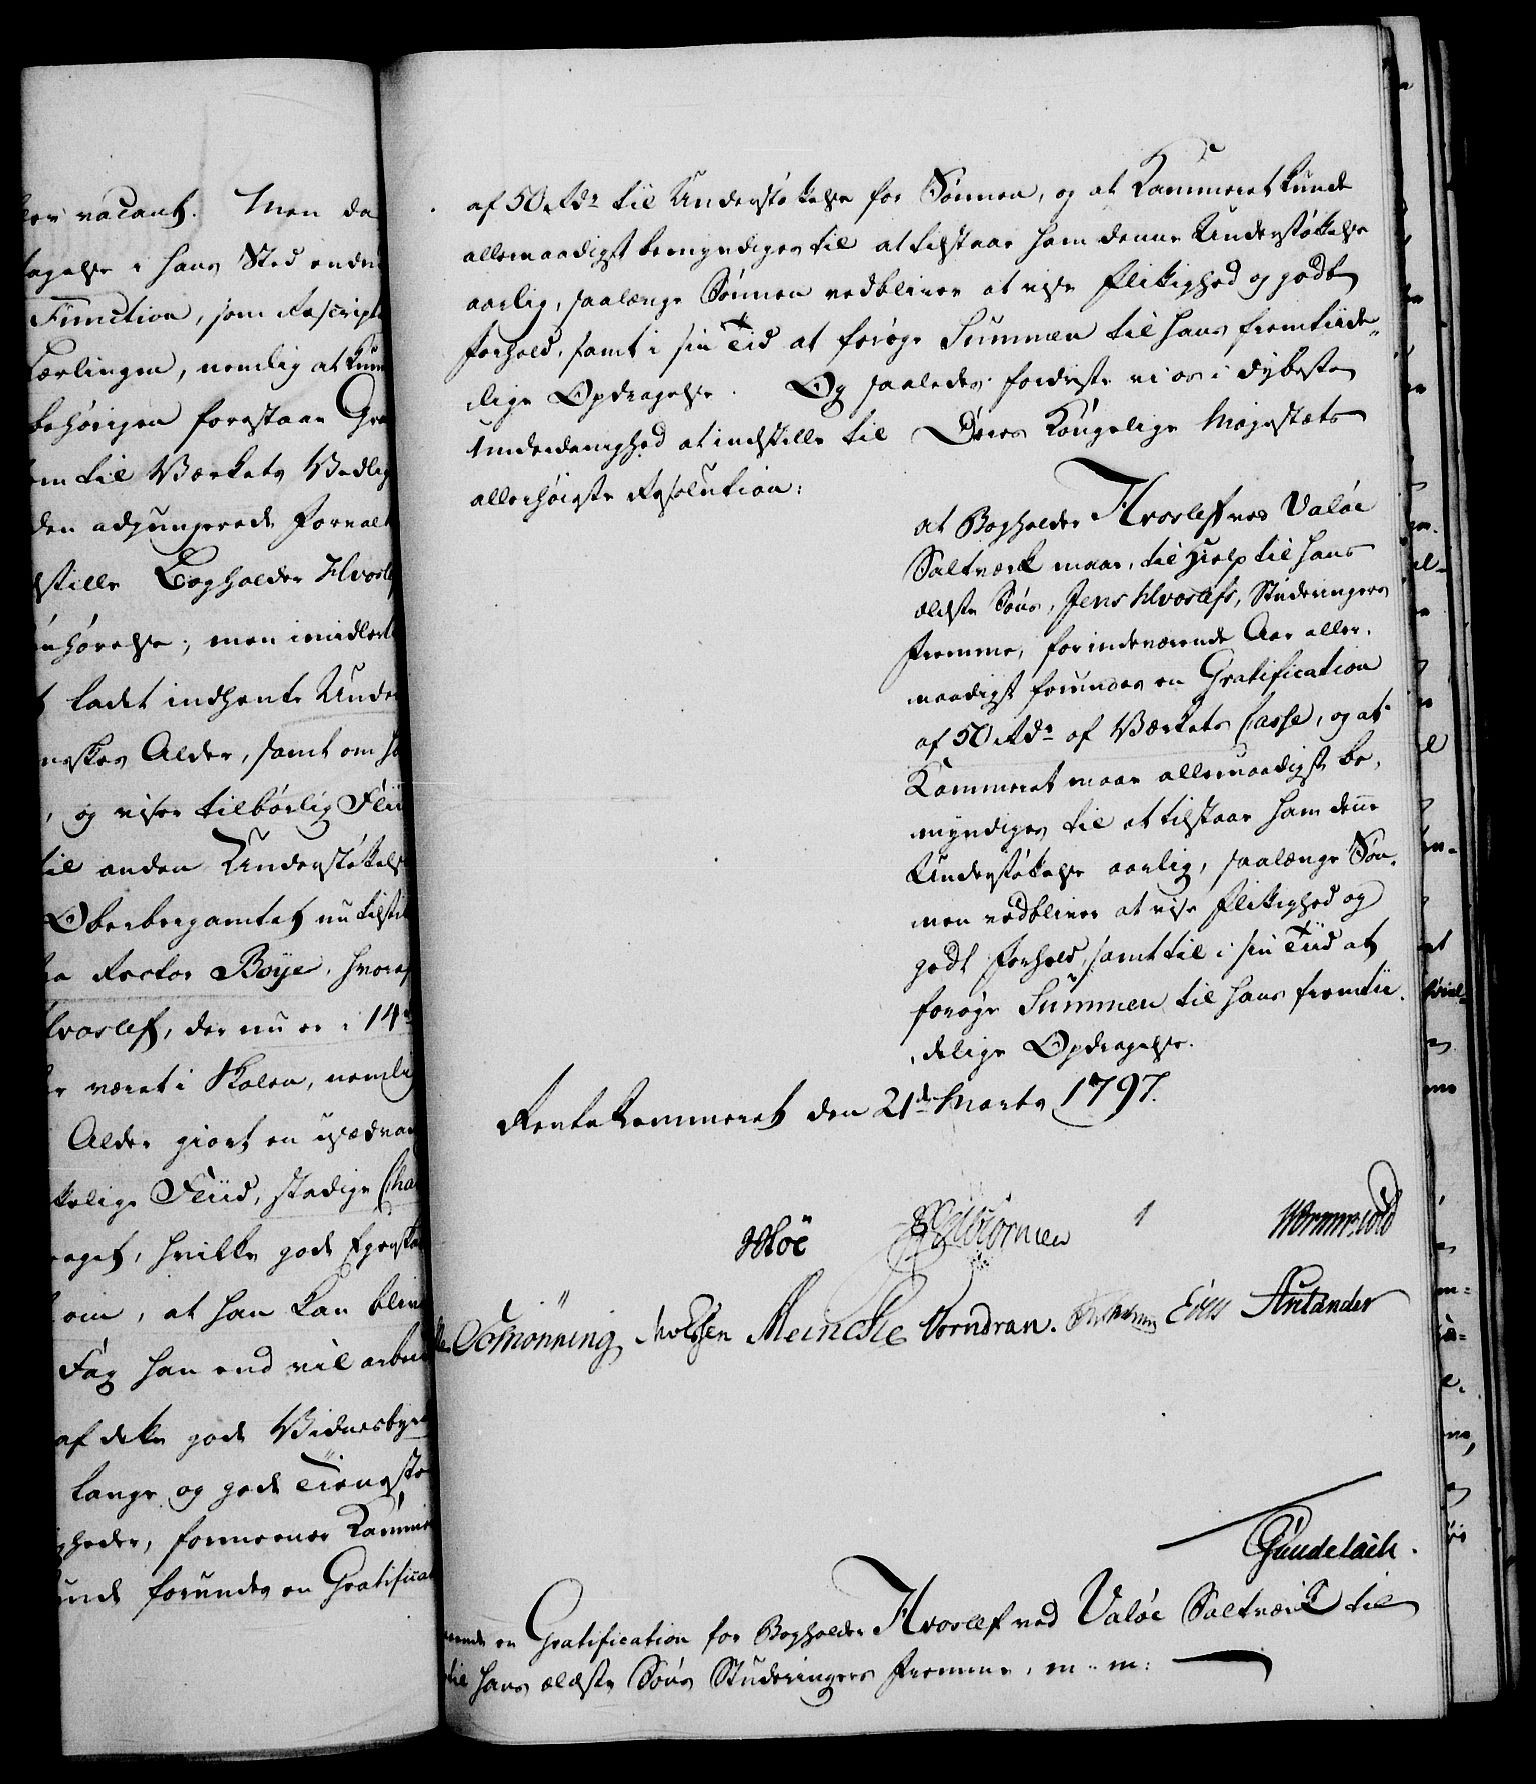 ler vacant. Men da
tagelse i hans Sted endnu
Function, som Rescript
Lærlingen, nemlig at kun
behørigen forestaae
em til Værkets Vedlig
den adjungerede Forvalt
dstille Bogholder Hvosle
nhørelse; men imidlert
t ladet indhente Under
neskes Alder, samt om h
, og viser tilbørlig Fliid
til anden Understøttelse
Oberbergamtet nu tilst
ra Rector Boye, hvoraf
Hvoslef, der nu er i 14de
er været i Skolen, nemlig
Alder giort en usædvan
kelige Fliid, stadige Cha
eaget, hvilke gode Egenska
om, at han kan blive
Fag han end vil arbei
af dette gode Vidnesbyr
lange og gode Tieneste
gheder, formeener Kamme
unde forundes en Gratificat
af 50 Rdr til Understøttelse for Sønnen, og at Kammeret kunde
allernaadigst bemyndiges til at tilstaae ham denne Understøttelse
aarlig, saalænge Sønnen vedbliver at vise Flittighed og godt
Forhold, samt i sin Tid at forøge Summen til hans fremtiide-
lige Opdragelse. Og saaledes fordriste vi os i dybeste
Underdanighed at indstille til Deres Kongelige Majestæts
allerhøieste Resolution:
at Bogholder Hvoslef ved Valøe
Saltværk maae, til Hielp til hans
ældste Søns, Jens Hvoslefs, Studeringers
Fremme, for indeværende Aar aller-
naadigst forundes en Gratification
af 50 Rdr af Værkets Casse, og at
Kammeret maae allernaadigst be-
myndiges til at tilstaae ham denne
Understøttelse aarlig, saalænge Søn-
nen vedbliver at vise Flittighed og
godt Forhold, samt til i sin Tiid at
forøge Summen til hans fremtii-
delige Opdragelse.
Rentekammeret den 21de Marts 1797.
Wormskiold
Schiønning Meincke Vorndran. Selander
Gundelach.
en Gratification for Bogholder Hvoslef ved Valøe Saltværk til
til hans ældste Søns Studeringers Fremme, m: m: